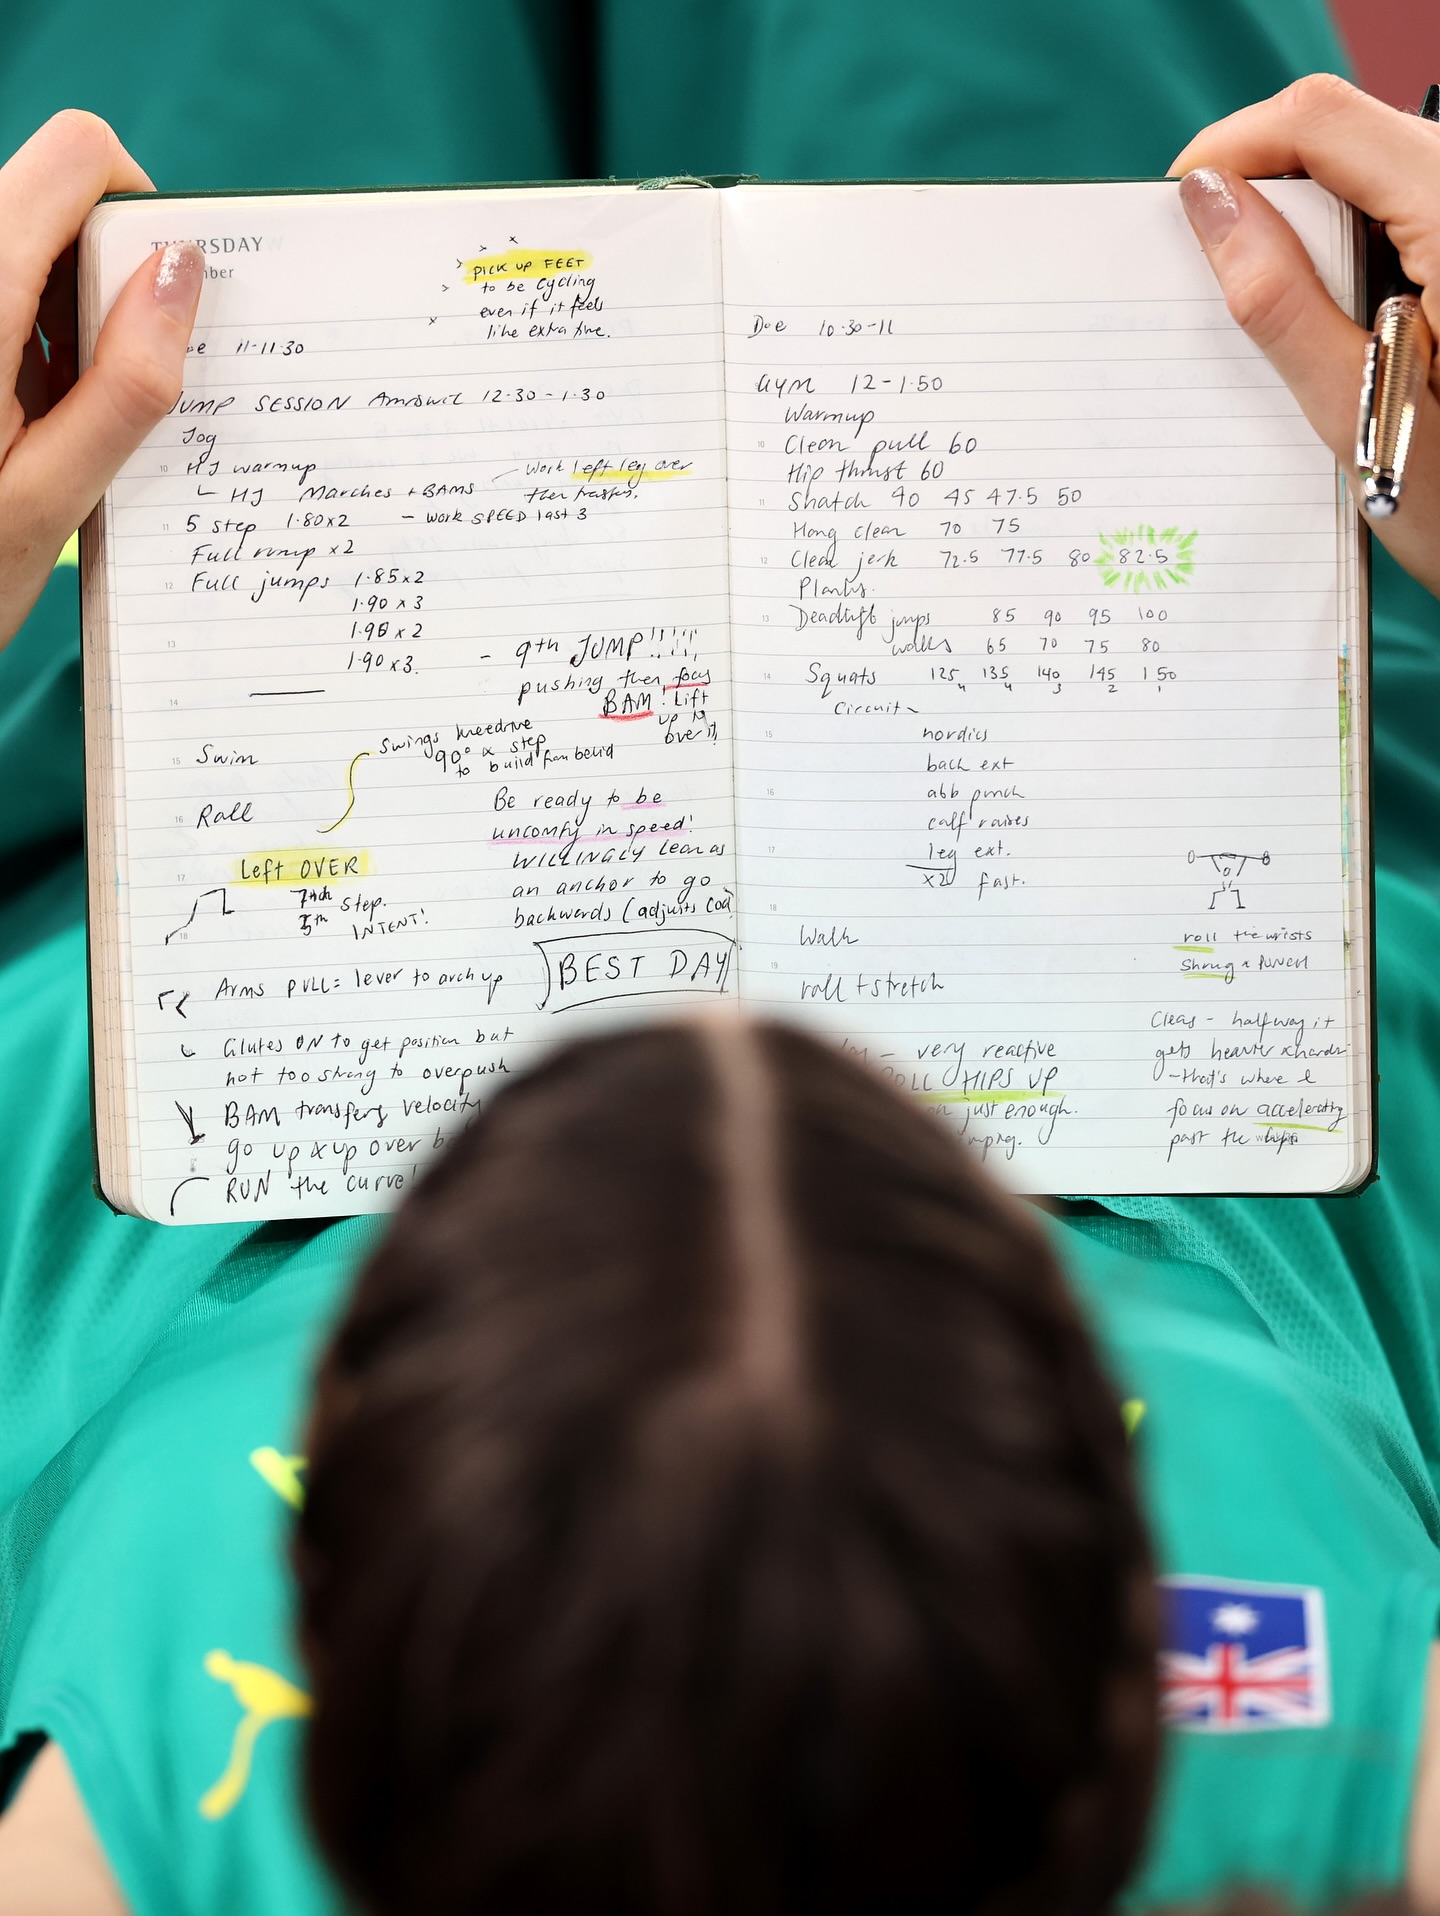 THURSDAY
PICK UP FEET
to be cycling
even if it feels
like extra time.
11-11.30
JUMP SESSION 12.30-1.30
Jog
10 HJ warmup
HJ Marches + BAMS
work left leg over
then
11 5 step 1.80x2 - work SPEED last 3
Full runup x2
12 Full jumps 1.85x2
1.90 x 3
1.90 x 2
13 1.90 x3.
- 9th JUMP!!!!!!
pushing then focus
BAM! Lift
up
over it!
14
15 Swim
swings kneedrive
90° & step
to build from behind
16 Roll
Be ready to be
uncomfy in speed!
WILLINGLY lean as
an anchor to go
backwards (adjusts
17 Left OVER
step.
5th
INTENT!
18
BEST DAY
Arms PULL = lever to arch up
Glutes ON to get position but
not too strong to overpush
BAM transfers velocity
go up & up over
RUN the curve!
Doe 10.30-11
GYM 12-1.50
Warmup
10 Clean pull 60
Hip thrust 60
11 Snatch 40 45 47.5 50
Hang clean 70 75
12 Clean jerk 72.5 77.5 80 82.5
Planks.
13 Deadlift jumps 85 90 95 100
walks 65 70 75 80
14 Squats 125 135 140 145 150
4 4 3 2 1
Circuit
15 nordics
back ext
16 abb punch
calf raises
17 leg ext.
x2 fast.
18
Walk
roll the wrists
Shrug & PUNCH
19
roll + stretch
- very reactive
ROLL HIPS UP
just enough.
Cleas - halfway it
gets heavier & harder
- that's where I
focus on accelerating
past the hips